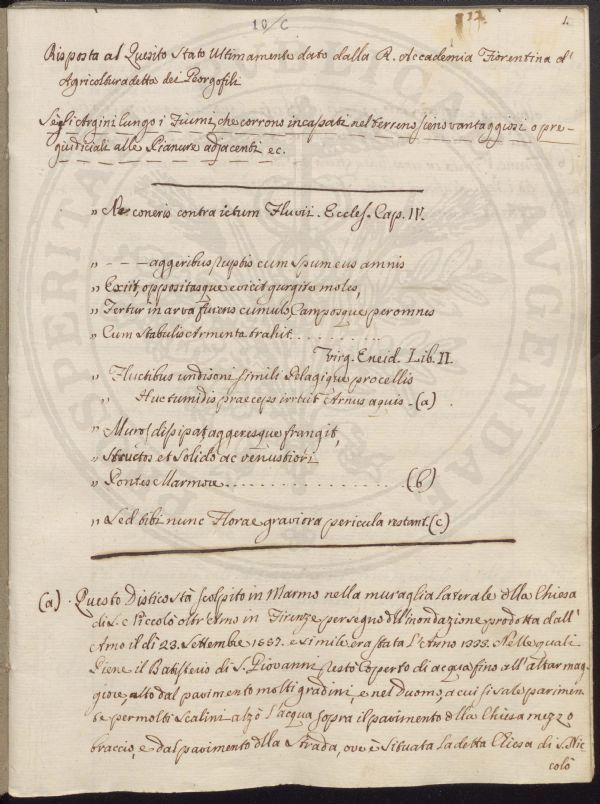 10/C
4
Risposta al Quesito stato Ultimamente dato dalla R. Accademia Fiorentina d'
Agricoltura detta dei Georgofili
Se gli Argini lungo i Fiumi, che corrono incassati nel terreno sieno vantaggiosi o pre-
giudiciali alle Pianure adjacenti ec.
" Ne coneris contra ictum Fluvii. Eccles. Cap. IV.
" - - - aggeribus ruptis cum spumeus amnis
" Exiit, oppositasque evicit gurgite moles,
" Fertur in arva furens cumulo, Camposque per omnes
" Cum stabulis Armenta trahit . . . . . . . . . .
Virg. Eneid. Lib. II.
" Fluctibus undisoni simili Pelagique procellis
" Huc tumidis praeceps irruit Arnus aquis - (a)
" Muros dissipat, aggeresque frangit,
" Structos et solido ac venustiori
" Pontes Marmore . . . . . . . . . . (b)
" Sed tibi nunc Florae graviora pericula restant. (c)
(a) . Questo Distico stà scolpito in Marmo nella muraglia laterale della Chiesa
di S. Niccolò oltr'Arno in Firenze per segno dell'inondazione prodotta dall'
Arno il di 23. Settembre 1557. e simile era stata l'Anno 1333. Nelle quali
Piene il Batisterio di S. Giovanni restò coperto di acqua fino all'altar mag-
giore, alto dal pavimento molti gradini, e nel Duomo, a cui si sale parimen
te per molti scalini alzò l'acqua sopra il pavimento della Chiesa mezzo
braccio, e dal pavimento della Strada, ove è situata la detta Chiesa di S. Nic
colò